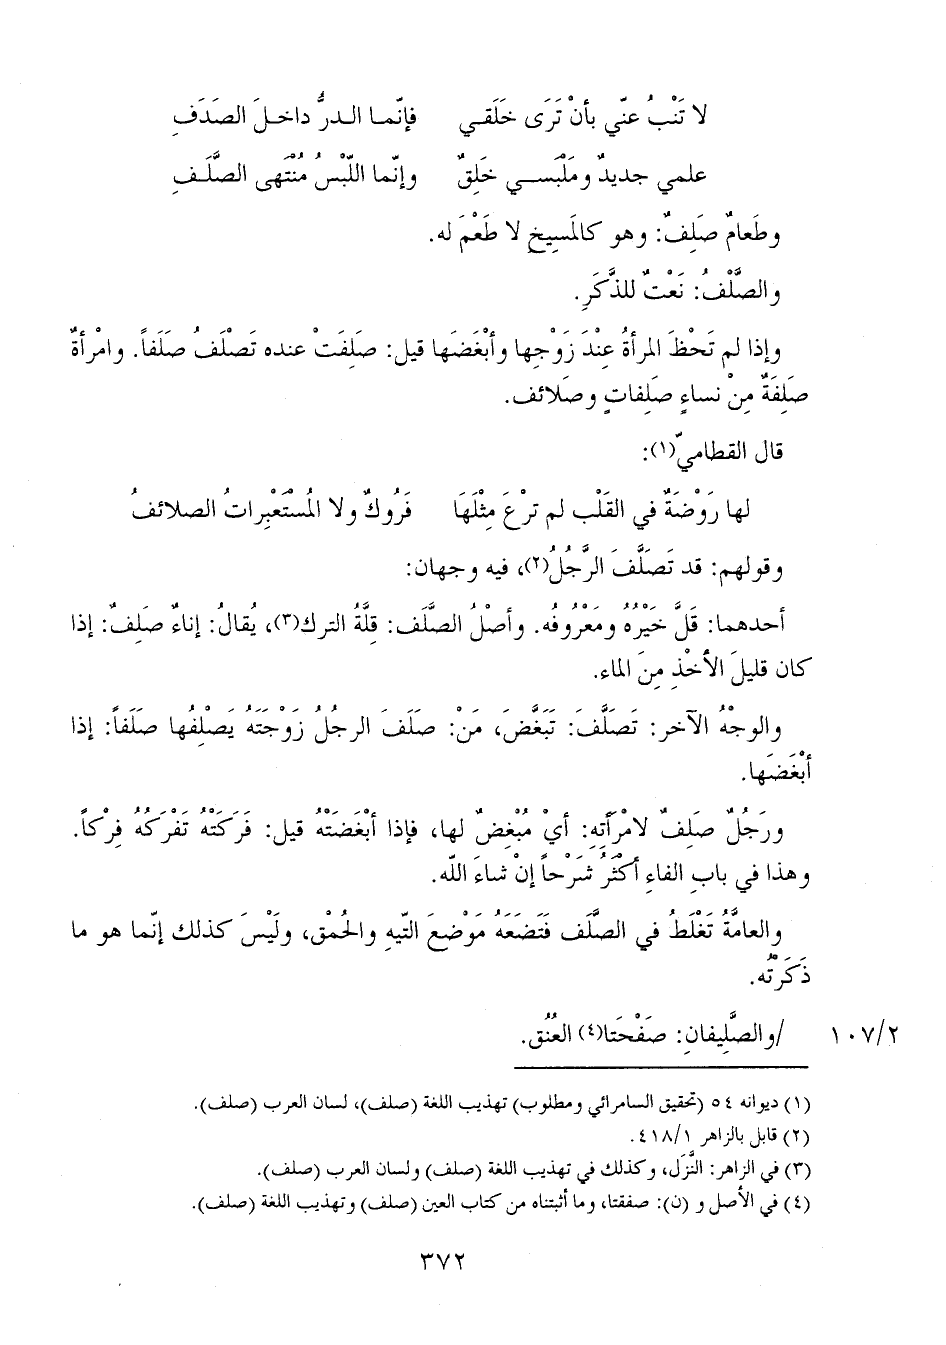 لا تَنْبُ عنّي بأنْ تَرَى خَلَقي فإنّما الدرُّ داخلَ الصَدَفِ
علمي جديدٌ ومَلْبَسي خَلِقٌ وإنّما اللّبْسُ مُنْتَهى الصَّلَفِ
وطَعامٌ صَلِفٌ: وهو كالمَسِيخِ لا طَعْمَ له.
والصَّلْفُ: نَعْتٌ للذَّكَرِ.
وإذا لم تَحْظَ المرأةُ عِنْدَ زَوْجِها وأبْغَضَها قيل: صَلِفَتْ عنده تَصْلَفُ صَلَفاً. وامْرأةٌ
صَلِفَةٌ مِنْ نساءٍ صَلِفاتٍ وصَلائف.
قال القطاميّ(١):
لها رَوْضَةٌ في القَلْب لم تَرْعَ مِثْلَهَا فَرُوكٌ ولا المُسْتَعْبِراتُ الصلائفُ
وقولهم: قد تَصَلَّفَ الرَّجُلُ(٢)، فيه وجهان:
أحدهما: قَلَّ خَيْرُهُ ومَعْرُوفُه. وأصْلُ الصَّلَف: قِلَّةُ الترك(٣)، يُقالُ: إناءٌ صَلِفٌ: إذا
كان قليلَ الأخْذِ مِنَ الماء.
والوجْهُ الآخر: تَصَلَّفَ: تَبَغَّضَ، مَنْ: صَلَفَ الرجلُ زَوْجَتَهُ يَصْلِفُها صَلَفاً: إذا
أبْغَضَها.
ورَجُلٌ صَلِفٌ لامْرأتِهِ: أيْ مُبْغِضٌ لها، فإذا أبْغَضَتْهُ قيل: فَرَكَتْهُ تَفْرَكُهُ فِرْكاً.
وهذا في بابِ الفاءِ أكْثَرُ شَرْحاً إنْ شاءَ اللّه.
والعامَّةُ تَغْلَطُ في الصَّلَف فَتَضَعَهُ مَوْضعَ التّيهِ والحُمْق، ولَيْسَ كذلك إنّما هو ما
ذَكَرْتُه.
١٠٧/٢ /والصَّلِيفانِ: صَفْحَتا(٤) العُنُق.
(١) ديوانه ٥٤ (تحقيق السامرائي ومطلوب) تهذيب اللغة (صلف)، لسان العرب (صلف).
(٢) قابل بالزاهر ٤١٨/١.
(٣) في الزاهر: النَّزَل، وكذلك في تهذيب اللغة (صلف) ولسان العرب (صلف).
(٤) في الأصل و (ن): صفقتا، وما أثبتناه من كتاب العين (صلف) وتهذيب اللغة (صلف).
٣٧٢